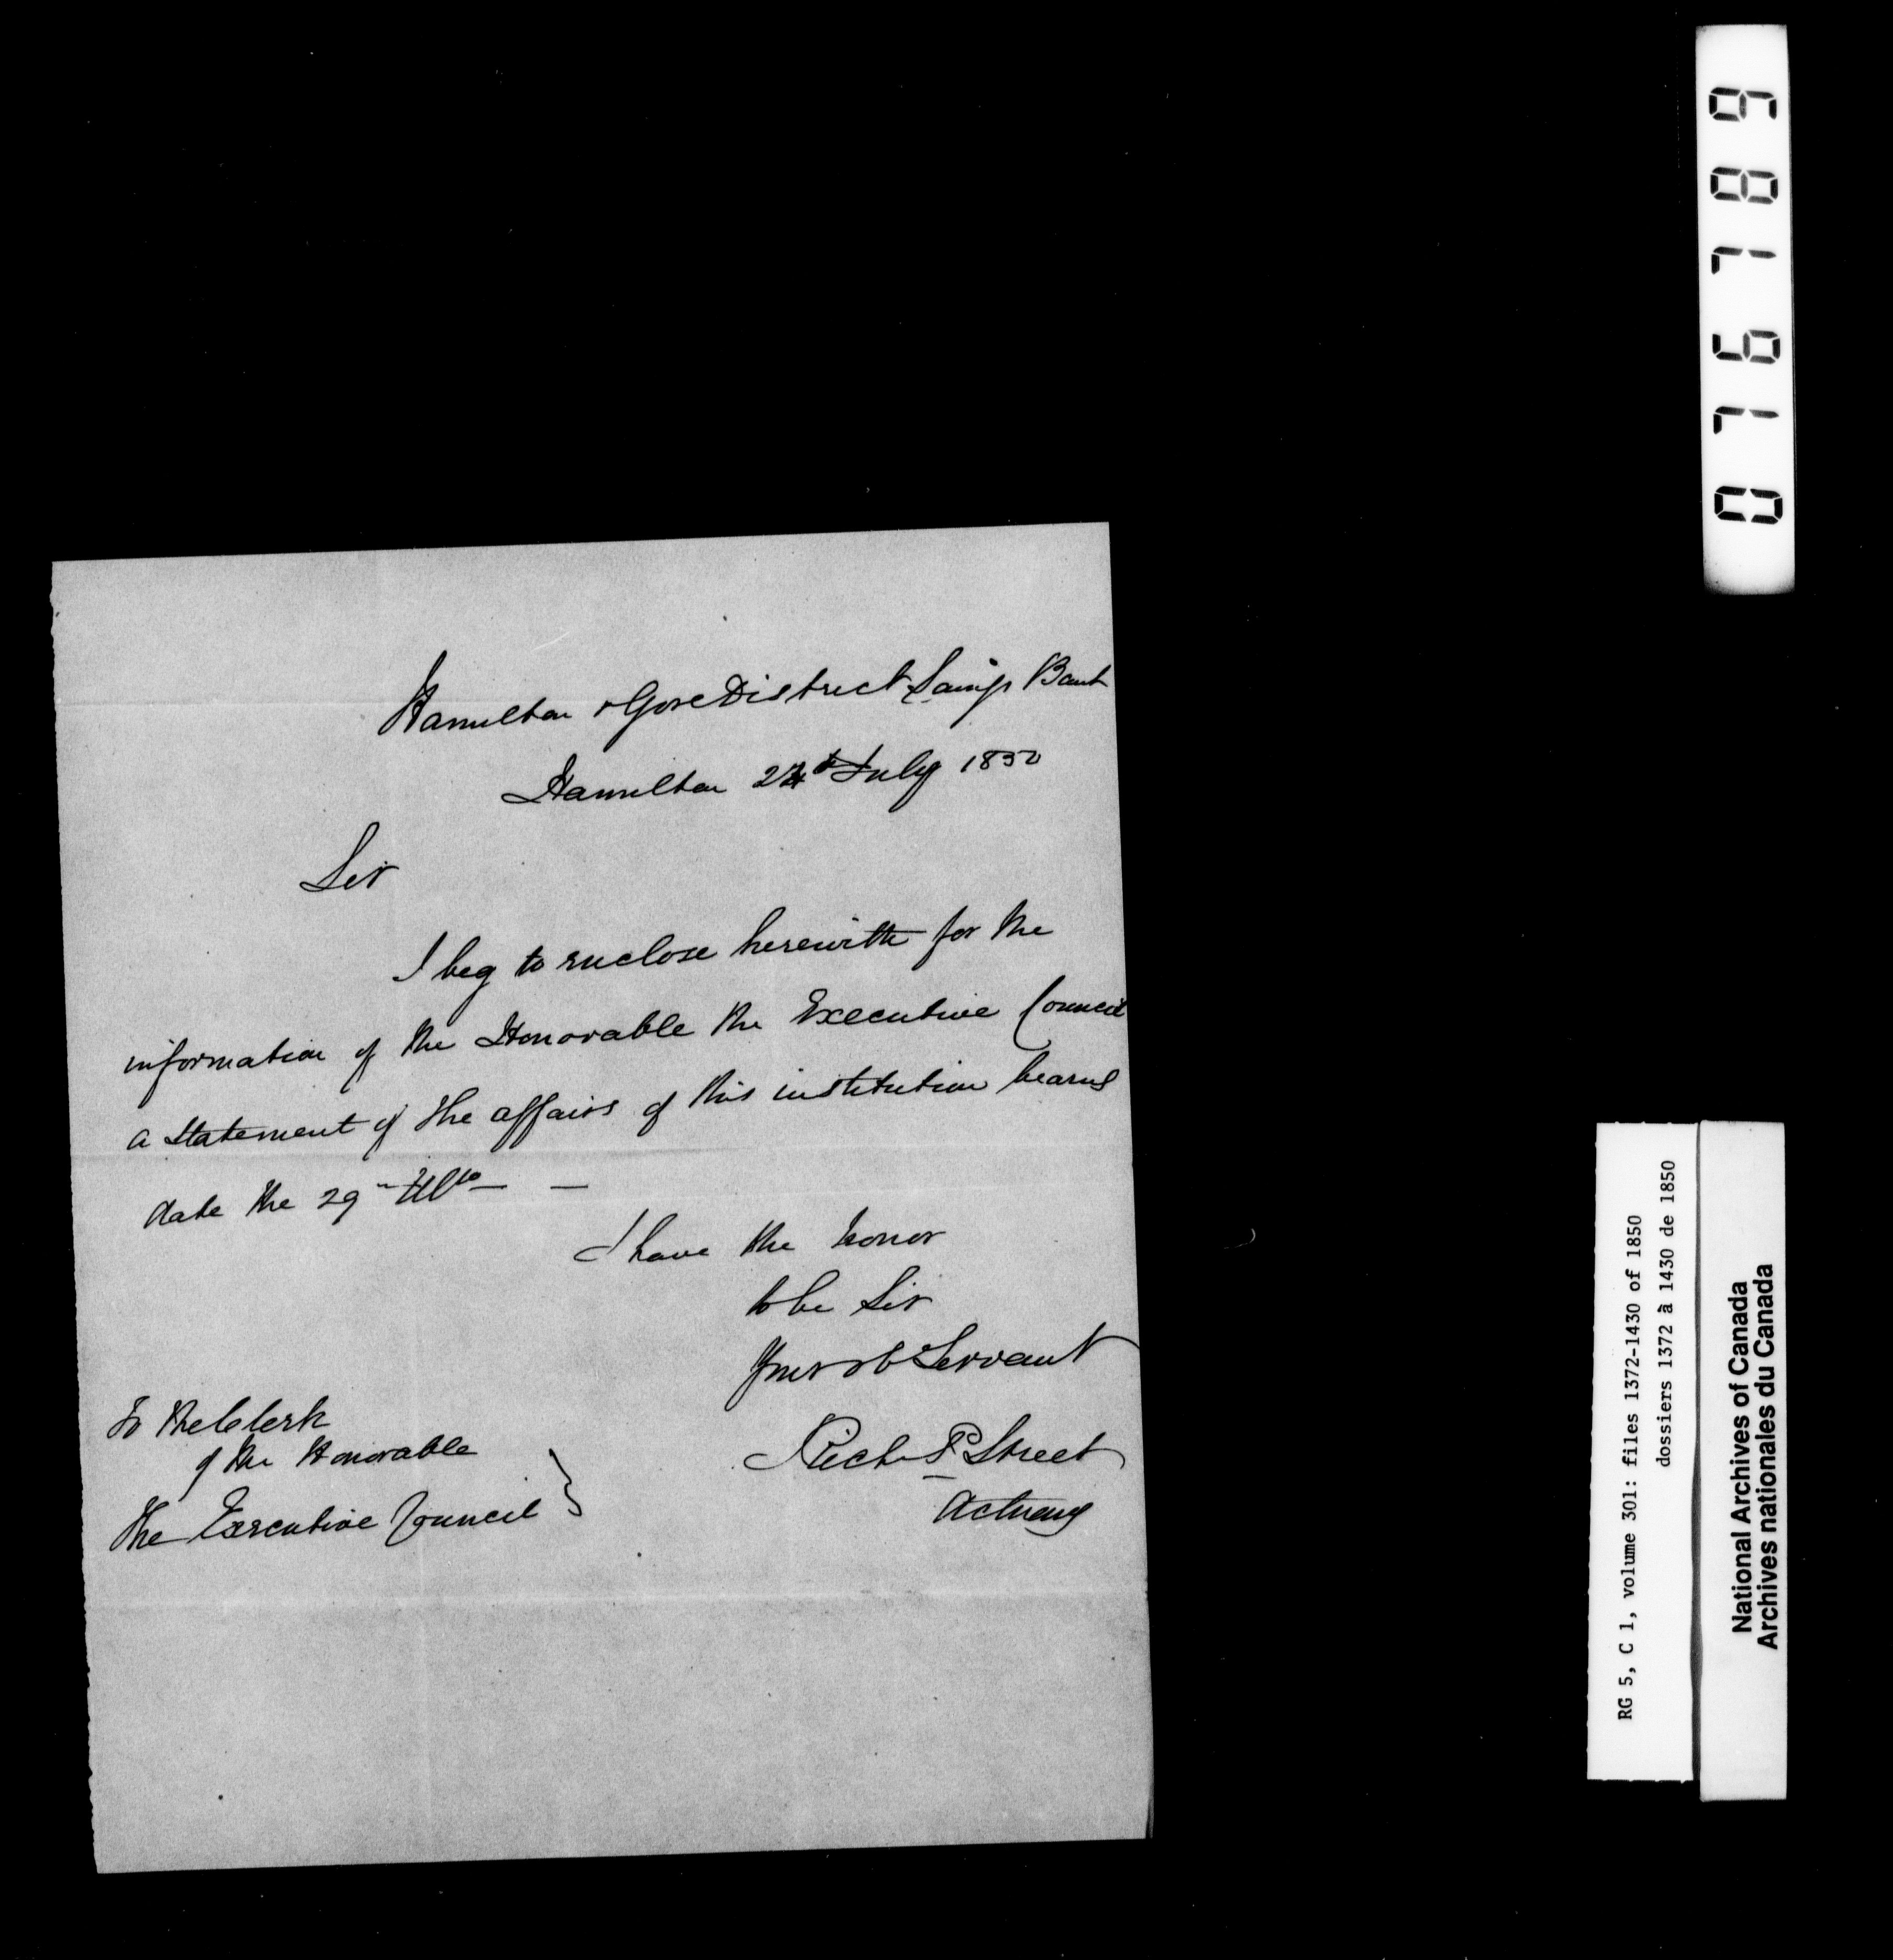 Hamilton & Gore District Savings Bank
Hamilton 24th July 1850
Sir
I beg to enclose herewith for the
information of the Honorable the Executive Council
a statement of the affairs of this institution bearing
date the 29th Ulto —
I have the honor
to be Sir
Your ob Servant
Rich P Street
Actuary
To the Clerk
of the Honorable
The Executive Council
076789
RG 5, C 1, volume 301: files 1372-1430 of 1850
dossiers 1372 à 1430 de 1850
National Archives of Canada
Archives nationales du Canada